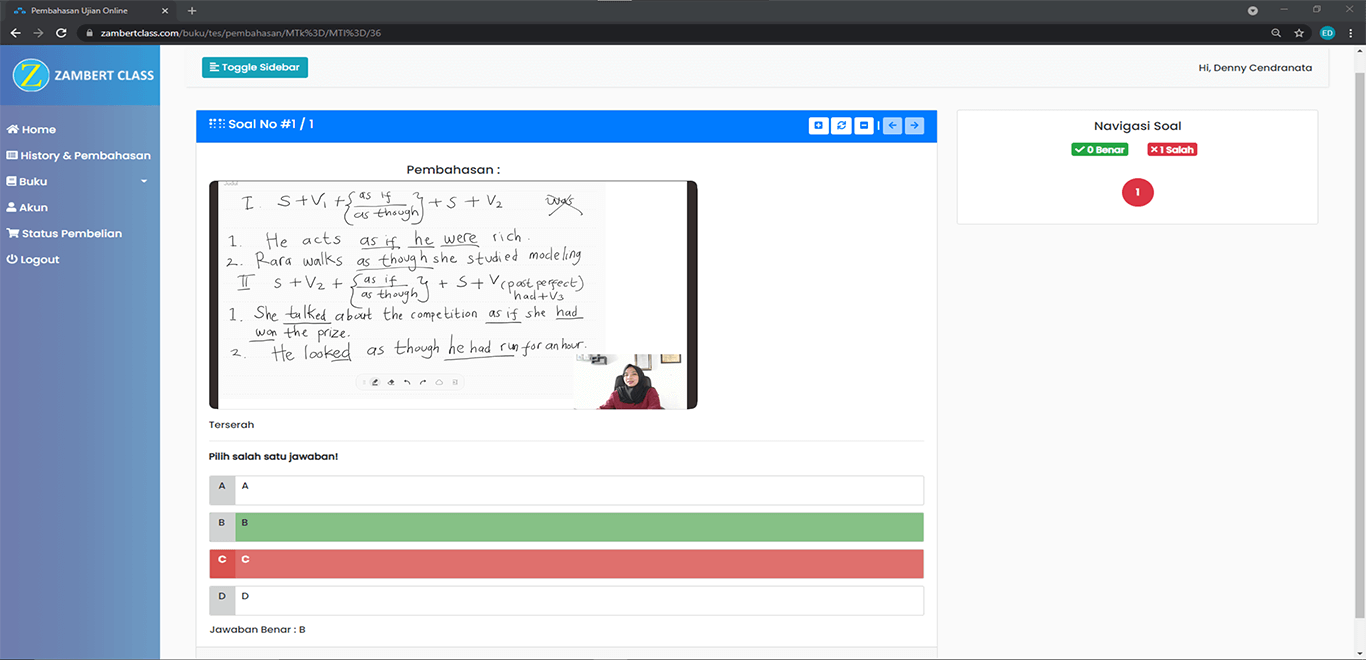 Pembahasan Ujian Online
zambertclass.com/buku/tes/pembahasan/MTk%3D/MTI/36
ED
Z ZAMBERT CLASS
Toggle Sidebar
Hi, Denny Cendranata
Home
History & Pembahasan
Buku
Akun
Status Pembelian
Logout
Soal No #1 / 1
Pembahasan :
I. S + V1 + { as if / as though } + S + V2 was
1. He acts as if he were rich.
2. Rara walks as though she studied modeling
II S + V2 + { as if / as though } + S + V (past perfect)
had + V3
1. She talked about the competition as if she had
won the prize.
2. He looked as though he had run for an hour.
Terserah
Pilih salah satu jawaban!
A A
B B
C C
D D
Jawaban Benar : B
Navigasi Soal
0 Benar 1 Salah
1